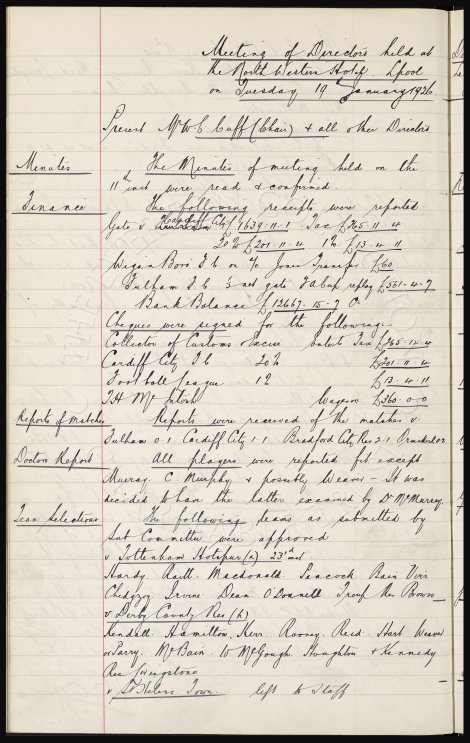 Meeting of Directors held at
the North Western Hotel Lpool
on Tuesday 19th January 1926
Present Mr W C Cuff (Chair) & all other Directors
Minutes The Minutes of meeting held on the
11th inst were read & confirmed.
Finance The following receipts were reported
Gate v Cardiff City £1639-11-1 Tax £365-11-4
20% £201-11-4 1% £13-4-11
Wigan Boro F C on a/c Jones Transfer £60
Fulham F C ½ net gate F A Cup replay £531-4-7
Bank Balance £12667-15-7 O
Cheques were signed for the following:-
Collector of Customs & Excise Entert Tax £365-12-4
Cardiff City F C 20% £201-11-4
Football League 1% £13-4-11
T H McIntosh Wages £360-0-0
Reports of Matches Reports were received of the matches v
Fulham 0-1 Cardiff City 1-1 Bradford City Res 2-1 Ormskirk
Doctors Report All players were reported fit except
Murray. C. Murphy & possibly Weaver - It was
decided to have the latter examined by Dr McMurray
Team Selections The following teams as submitted by
Sub Committee were approved
v Tottenham Hotspur (a) 23rd inst
Hardy. Raitt. Macdonald. Peacock Bain Virr
Chedgzoy Irvine Dean O'Donnell Troup Res Brown
v Derby County Res (h)
Kendall. Hamilton. Kerr. Rooney. Reid. Hart Weaver
or Parry. McBain. W McGough Houghton & Kennedy
Res Livingstone
v St Helens Town. left to Staff